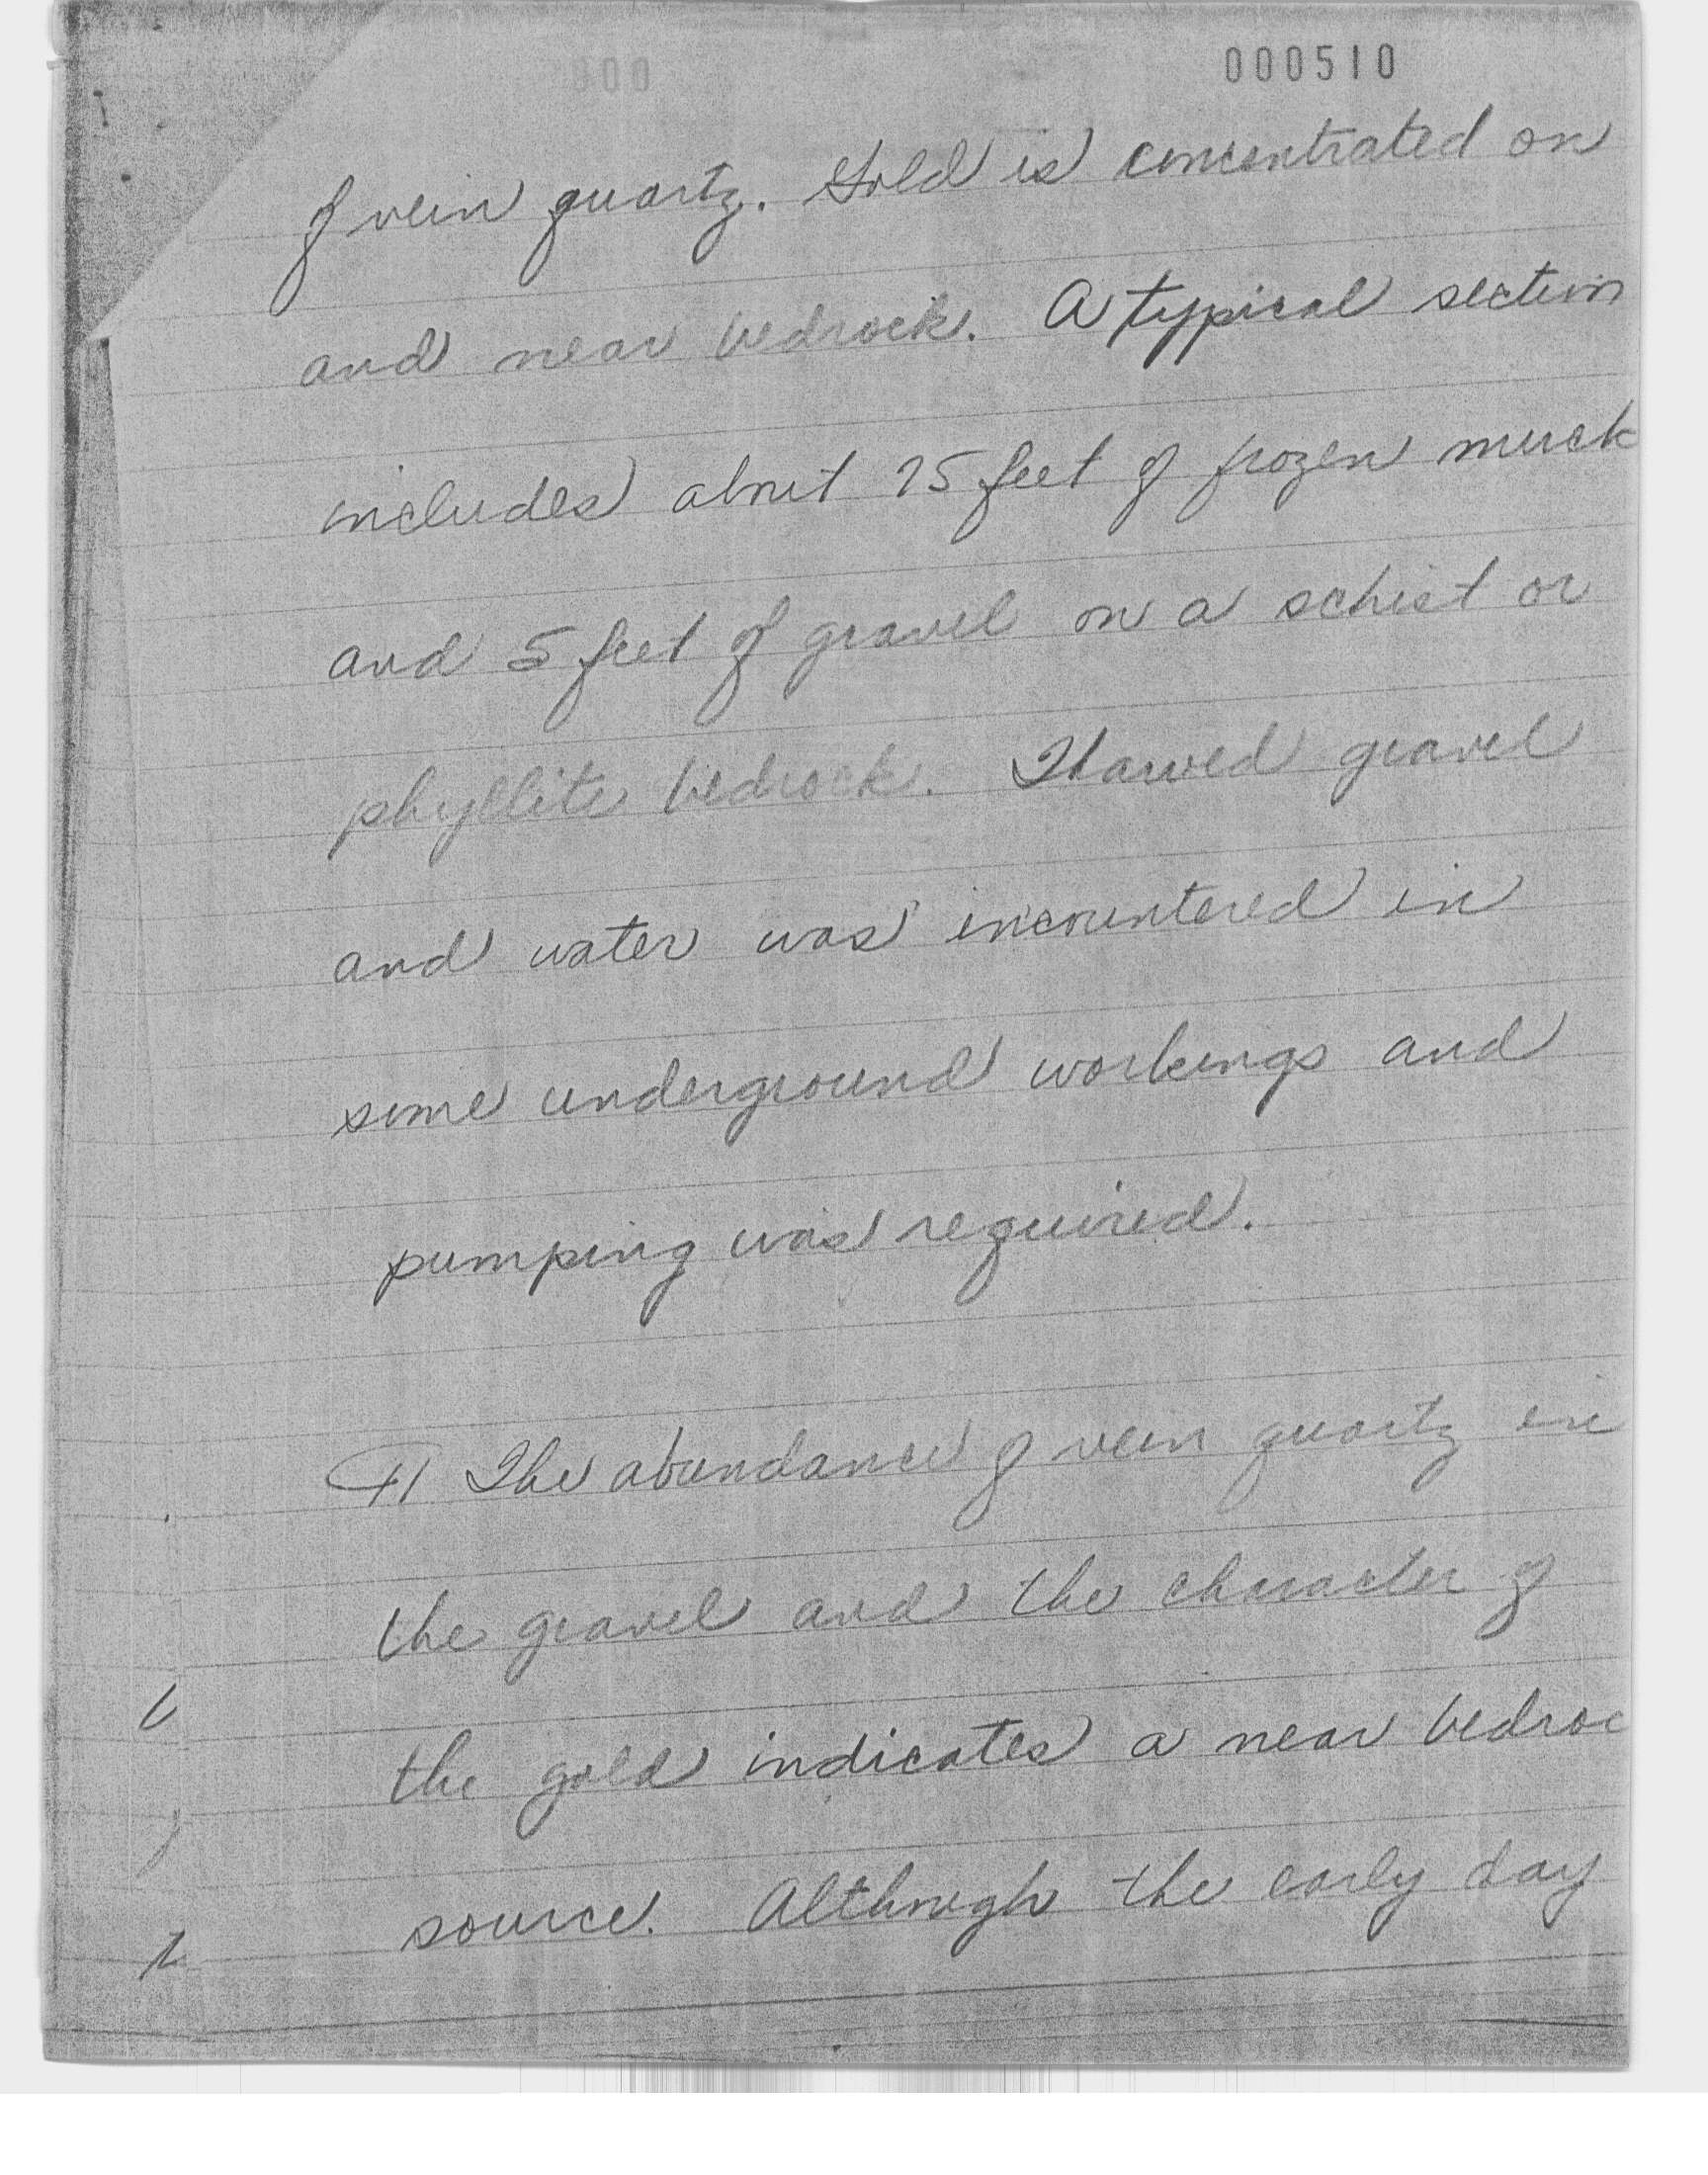 000510
of vein quartz. Gold is concentrated on
and near bedrock. A typical section
includes about 75 feet of frozen muck
and 5 feet of gravel on a schist or
phyllite bedrock. Thawed gravel
and water was incountered in
some underground workings and
pumping was required.
¶ The abundance of vein quartz in
the gravel and the character of
the gold indicates a near bedroc
source. Although the early day